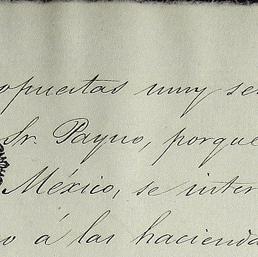 opuestas muy se
Sr. Payno, porque
México, se inter
o á las hacienda